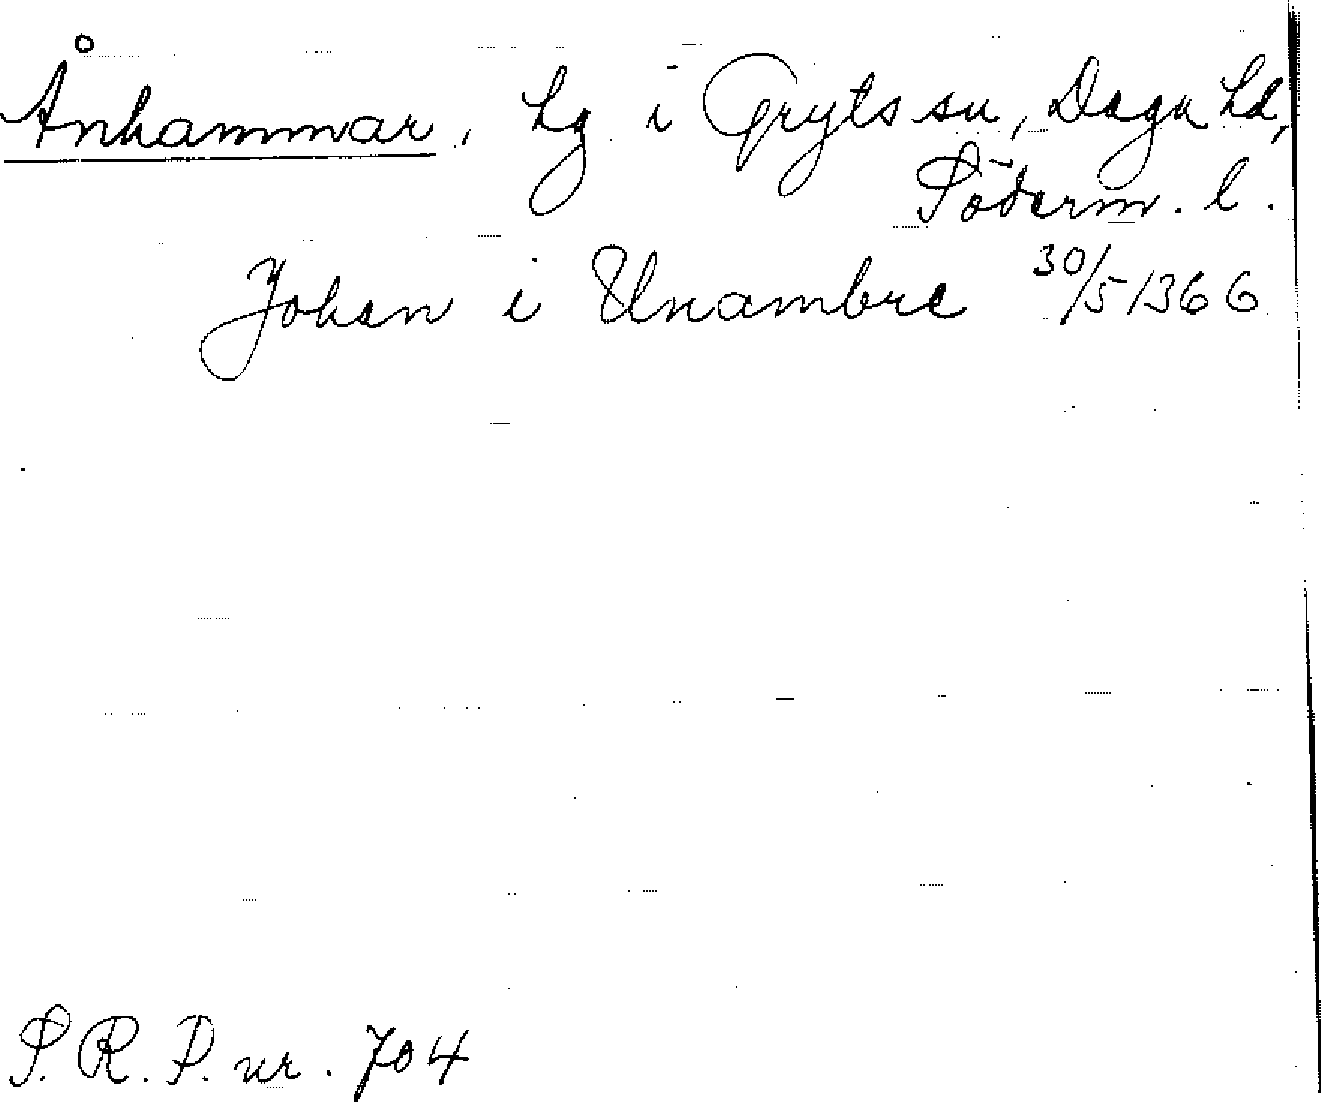 Ånhammar, hg i Gryts sn, Daga hd,
Söderm. l.
Johan i Unambre 30/5 1366
S. R. P. nr. 704